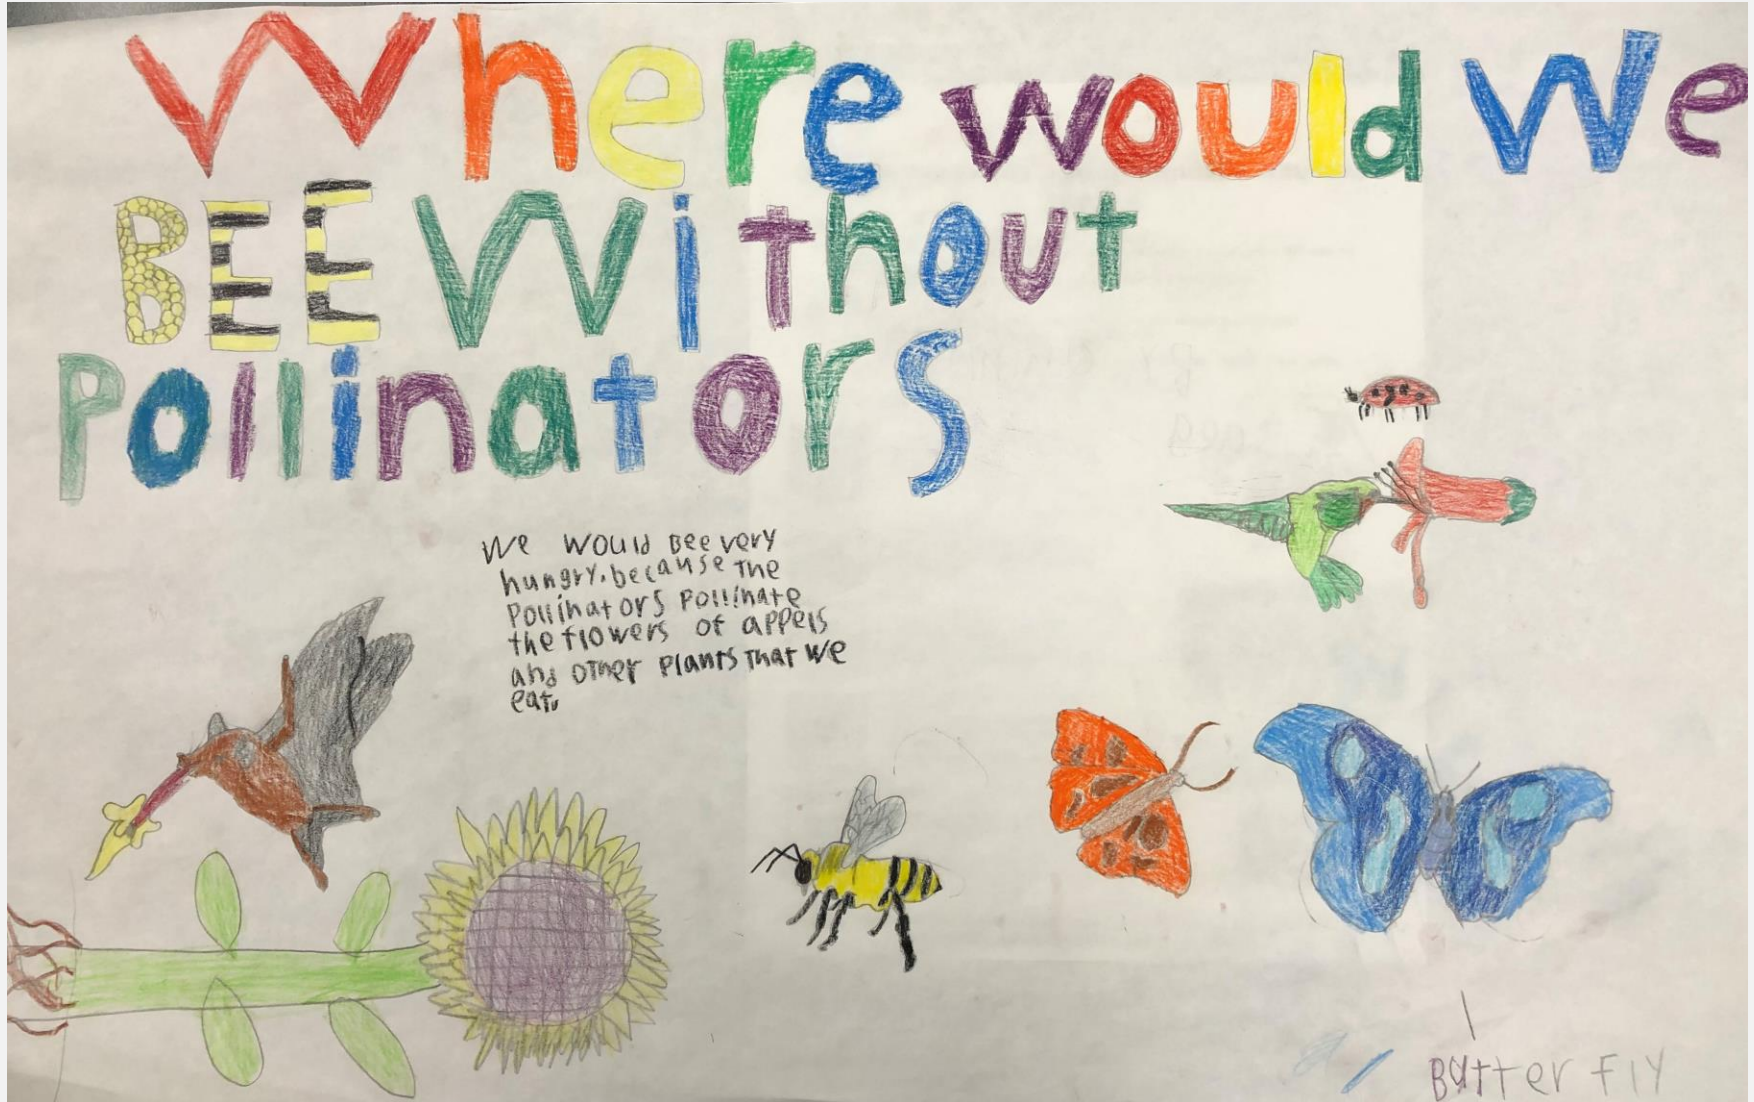 Where would We
BEE Without
Pollinators
We would Bee very
hungry. because the
Pollinators Pollinate
the flowers of appels
and other Plants That We
eat.
Butterfly